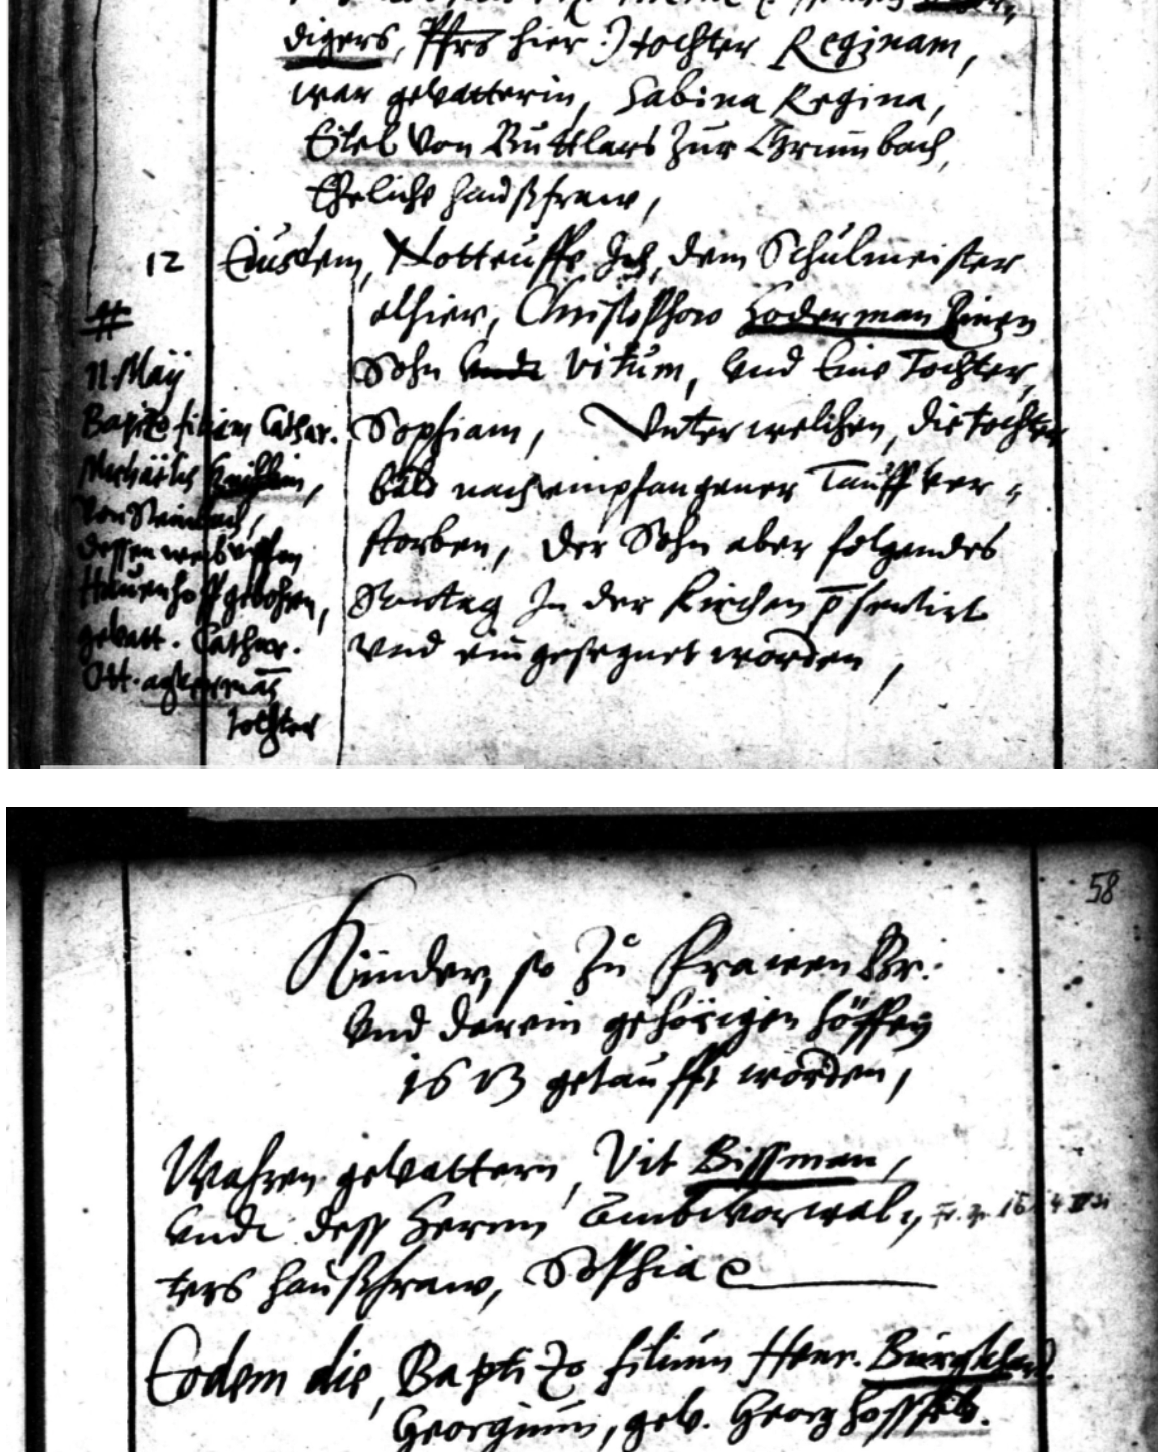 digers, Pfrs hier :) tochter Reginam,
war gevatterin, Sabina Regina,
Eitel von Buttlars zur Grumbach,
Eheliche haußfraw,
12 Eiusdem, Notteuffe Ich, dem Schulmeister
alhier, Christoffhoro Hoderman Einen
Sohn Vitum, vnd Eine Tochter,
Sophiam, Vnter welchen, die tochter
bald nach empfangener Tauff ver-
storben, der Sohn aber folgendes
Sontag In der Kirchen psentirt
vnd eingesegnet worden,
#
11. Maij
Baptizo filiam Cathar.
Michaelis
von Steinbach,
dessen weib vffen
Hauenhoff gebohren,
gevatt. Cathar.
Ott. ackermas
tochter
58
Kinder, so zu Frawen Br.
vnd darein gehörigen höffen
1613 getaufft worden,
Wahren gevattern, Vit Bissman,
vnde dess Herrn Ambtvorwal-
ters haußfraw, Sophia
Eodem die, Baptizo filium Henr. Burghard
Georgium, gev. Georg